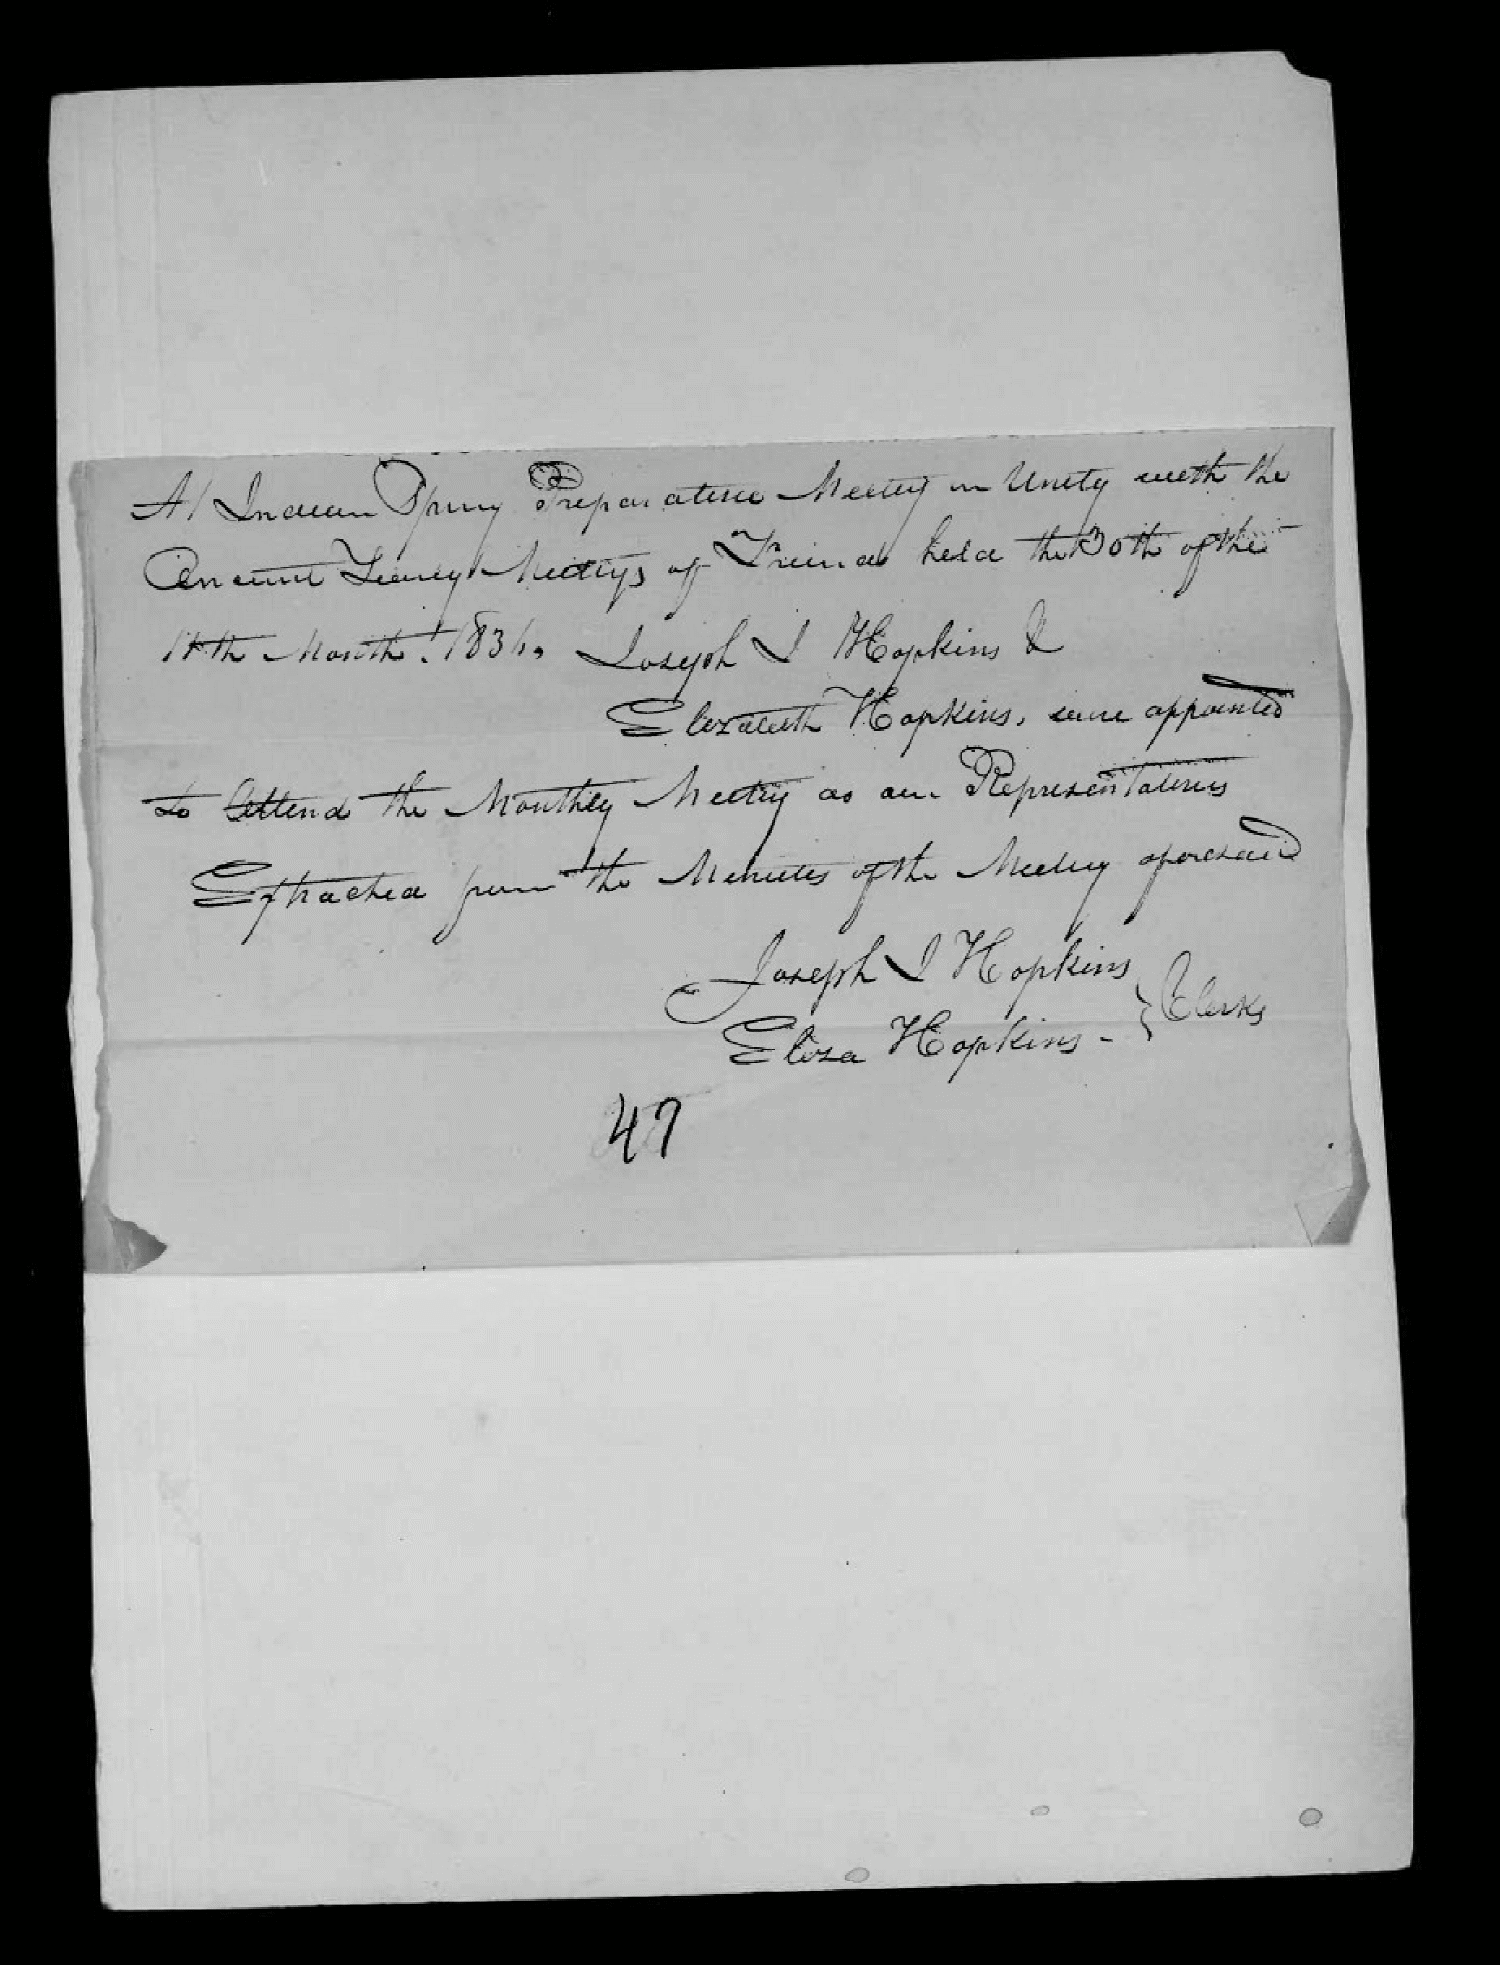 At Indian Spring Preparative Meeting in Unity with the
Ancient Yearly Meetings of Friends held the 30th of the
11th Month. 1836. Joseph I Hopkins &
Elizabeth Hopkins, were appointed
to Attend the Monthly Meeting as our Representatives
Extracted from the Minutes of the Meeting aforesaid
Joseph I Hopkins
Eliza Hopkins - } Clerks
47